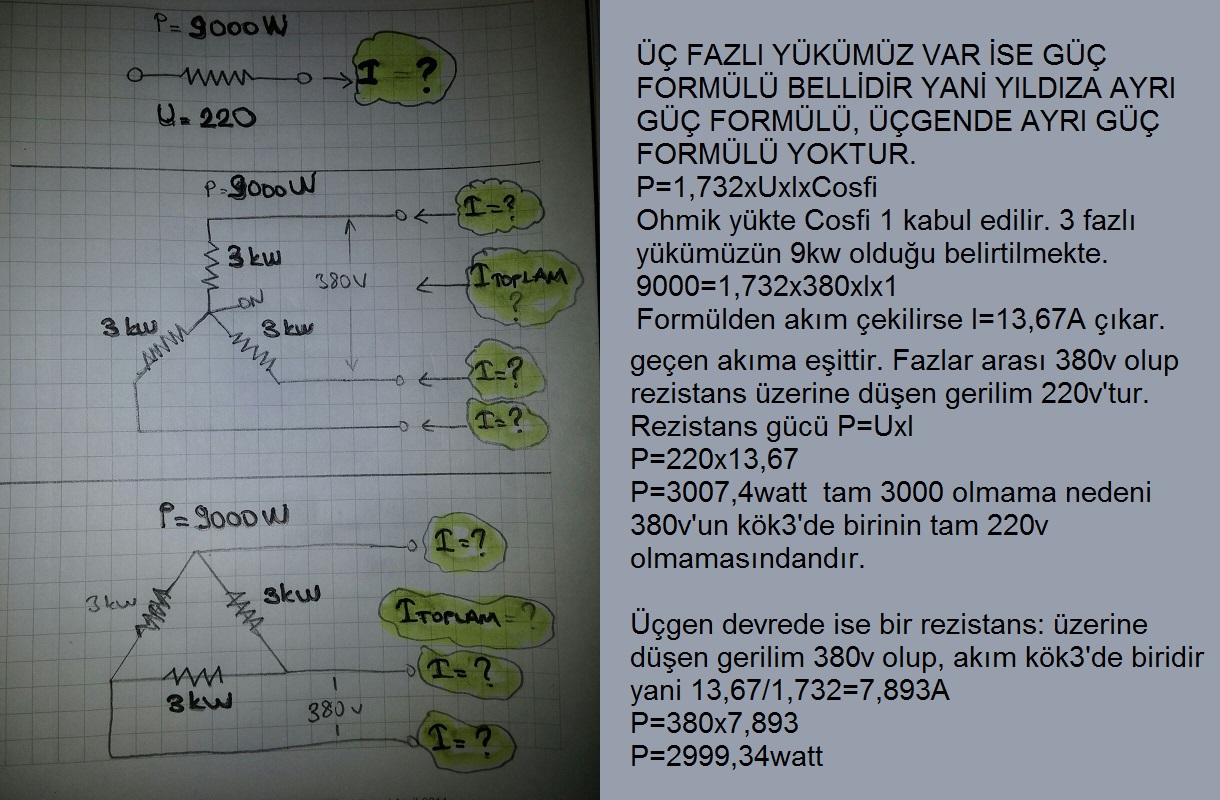 P= 9000W
I = ?
U= 220
P= 9000W
I=?
3 kw
380V
ITOPLAM
?
ON
3 kw
3 kw
I=?
I=?
P= 9000W
I=?
3kw
3kw
ITOPLAM=?
I=?
3kw
380v
I=?
ÜÇ FAZLI YÜKÜMÜZ VAR İSE GÜÇ
FORMÜLÜ BELLİDİR YANİ YILDIZA AYRI
GÜÇ FORMÜLÜ, ÜÇGENDE AYRI GÜÇ
FORMÜLÜ YOKTUR.
P=1,732xUxIxCosfi
Ohmik yükte Cosfi 1 kabul edilir. 3 fazlı
yükümüzün 9kw olduğu belirtilmekte.
9000=1,732x380xIx1
Formülden akım çekilirse I=13,67A çıkar.
geçen akıma eşittir. Fazlar arası 380v olup
rezistans üzerine düşen gerilim 220v'tur.
Rezistans gücü P=UxI
P=220x13,67
P=3007,4watt tam 3000 olmama nedeni
380v'un kök3'de birinin tam 220v
olmamasındandır.
Üçgen devrede ise bir rezistans: üzerine
düşen gerilim 380v olup, akım kök3'de biridir
yani 13,67/1,732=7,893A
P=380x7,893
P=2999,34watt